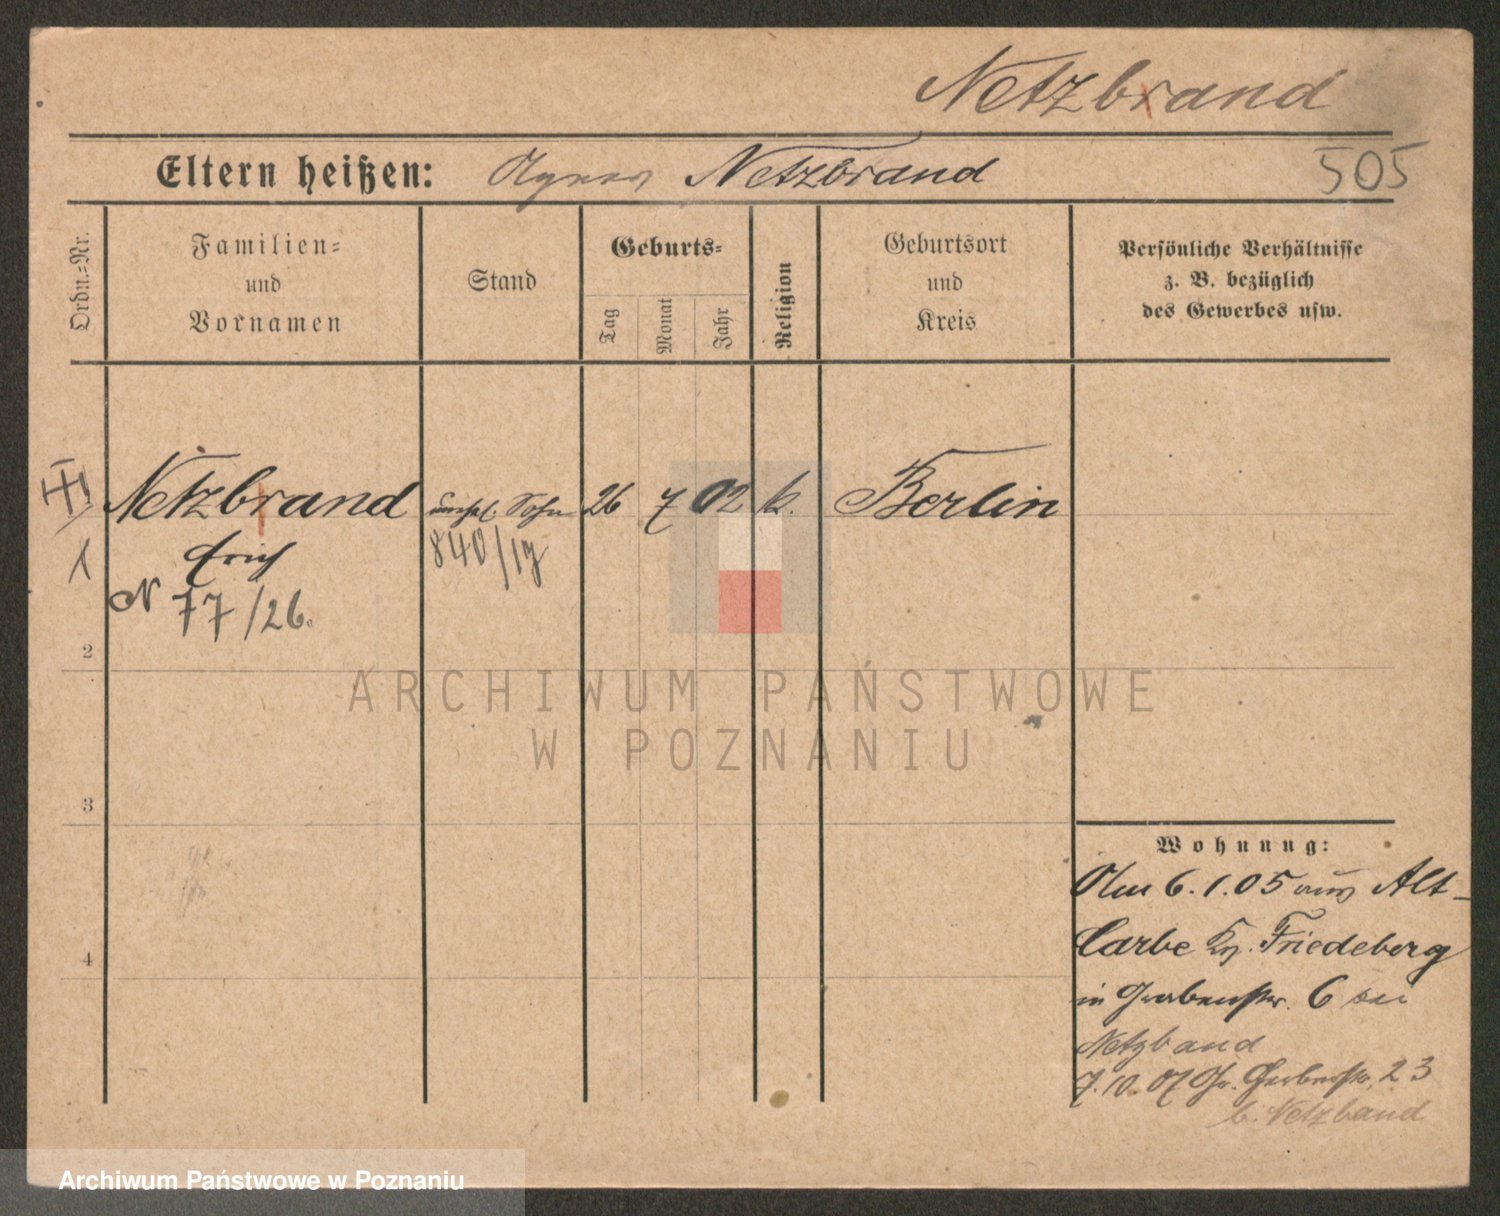 Netzbrand
Eltern heißen: Agnes Netzbrand
505
Ordn.-Nr.
Familien-
und
Vornamen
Stand
Geburts-
Tag
Monat
Jahr
Religion
Geburtsort
und
Kreis
Persönliche Verhältnisse
z. B. bezüglich
des Gewerbes usw.
Netzbrand unehel. Sohn 26 7 02 k. Berlin
1
Erich
840/17
N 77/26.
2
ARCHIWUM PAŃSTWOWE
W POZNANIU
3
4
Wohnung:
Am 6.1.05 aus Alt-
Carbe Kr. Friedeberg
in Grabenstr. 6 bei
Netzband
7.10.07 Gr. Gerberstr. 23
b. Netzband
Archiwum Państwowe w Poznaniu